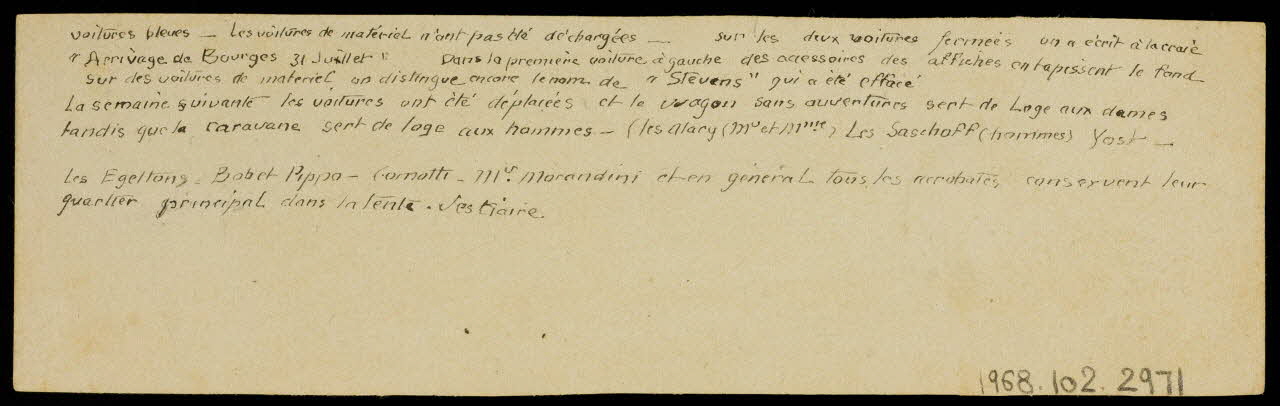 voitures bleues — Les voitures de matériel n'ont pas été déchargées — sur les deux voitures fermées on a écrit à la craie
"Arrivage de Bourges 31 Juillet" Dans la première voiture à gauche des accessoires des affiches entapissent le fond
sur des voitures de matériel on distingue encore le nom de "Stevens" qui a été effacé
La semaine suivante les voitures ont été déplacées et le wagon sans ouvertures sert de Loge aux dames
tandis que la caravane sert de loge aux hommes — (les Alary (Mr et Mme) Les Saschoff (hommes) Yost —
Les Egeltons - Bobet Pippo - Comotti - Mr. Morandini et en général tous les acrobates conservent leur
quartier principal dans la tente. Vestiaire.
1968.102.2971